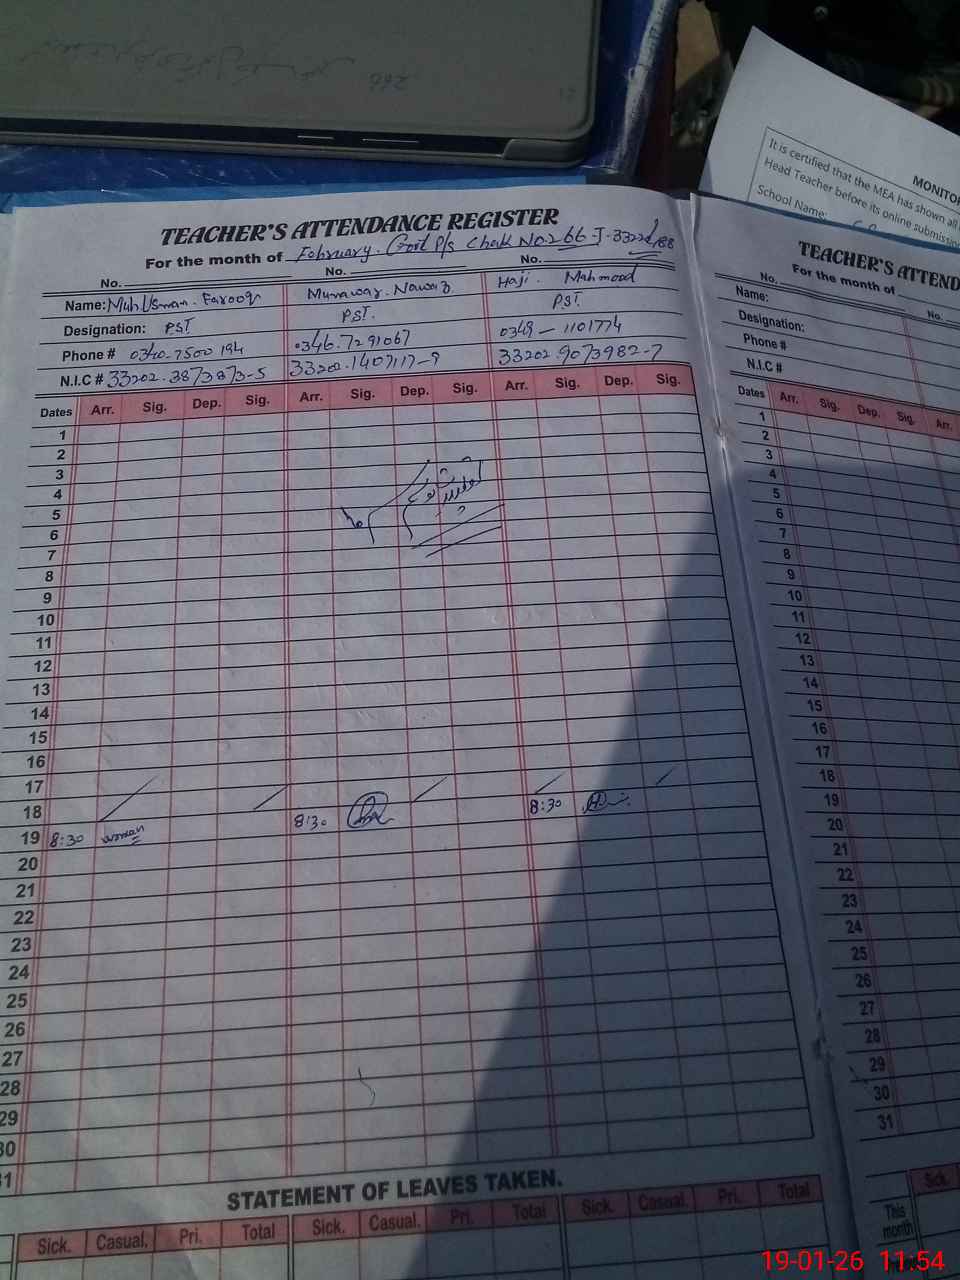 It is certified that the MEA has shown all
Head Teacher before its online submission
School Name:
TEACHER'S ATTENDANCE REGISTER
For the month of February. Govt P/S Chak No. 266 J-
No. No. No.
Name: Muh Usman. Farooq Munawaz. Nawaz Haji. Mahmood
Designation: PST PST. PST.
Phone # 0340-7500194 0346.7291067 0348-1101774
N.I.C # 33202.3873873-5 33202.1407117-9 33202.9073982-7
Dates Arr. Sig. Dep. Sig. Arr. Sig. Dep. Sig. Arr. Sig. Dep. Sig.
1
2
3
4
5
6
7
8
9
10
11
12
13
14
15
16
17
18
19 8:30 8:30 8:30
20
21
22
23
24
25
26
27
28
29
30
31
STATEMENT OF LEAVES TAKEN.
Sick. Casual. Pri. Total Sick. Casual. Pri. Total Sick. Casual. Pri. Total
TEACHER'S ATTEND
For the month of
No. No.
Name:
Designation:
Phone #
N.I.C #
Dates Arr. Sig. Dep. Sig. Arr.
1
2
3
4
5
6
7
8
9
10
11
12
13
14
15
16
17
18
19
20
21
22
23
24
25
26
27
28
29
30
31
Sick.
This
month
19-01-26 11:54